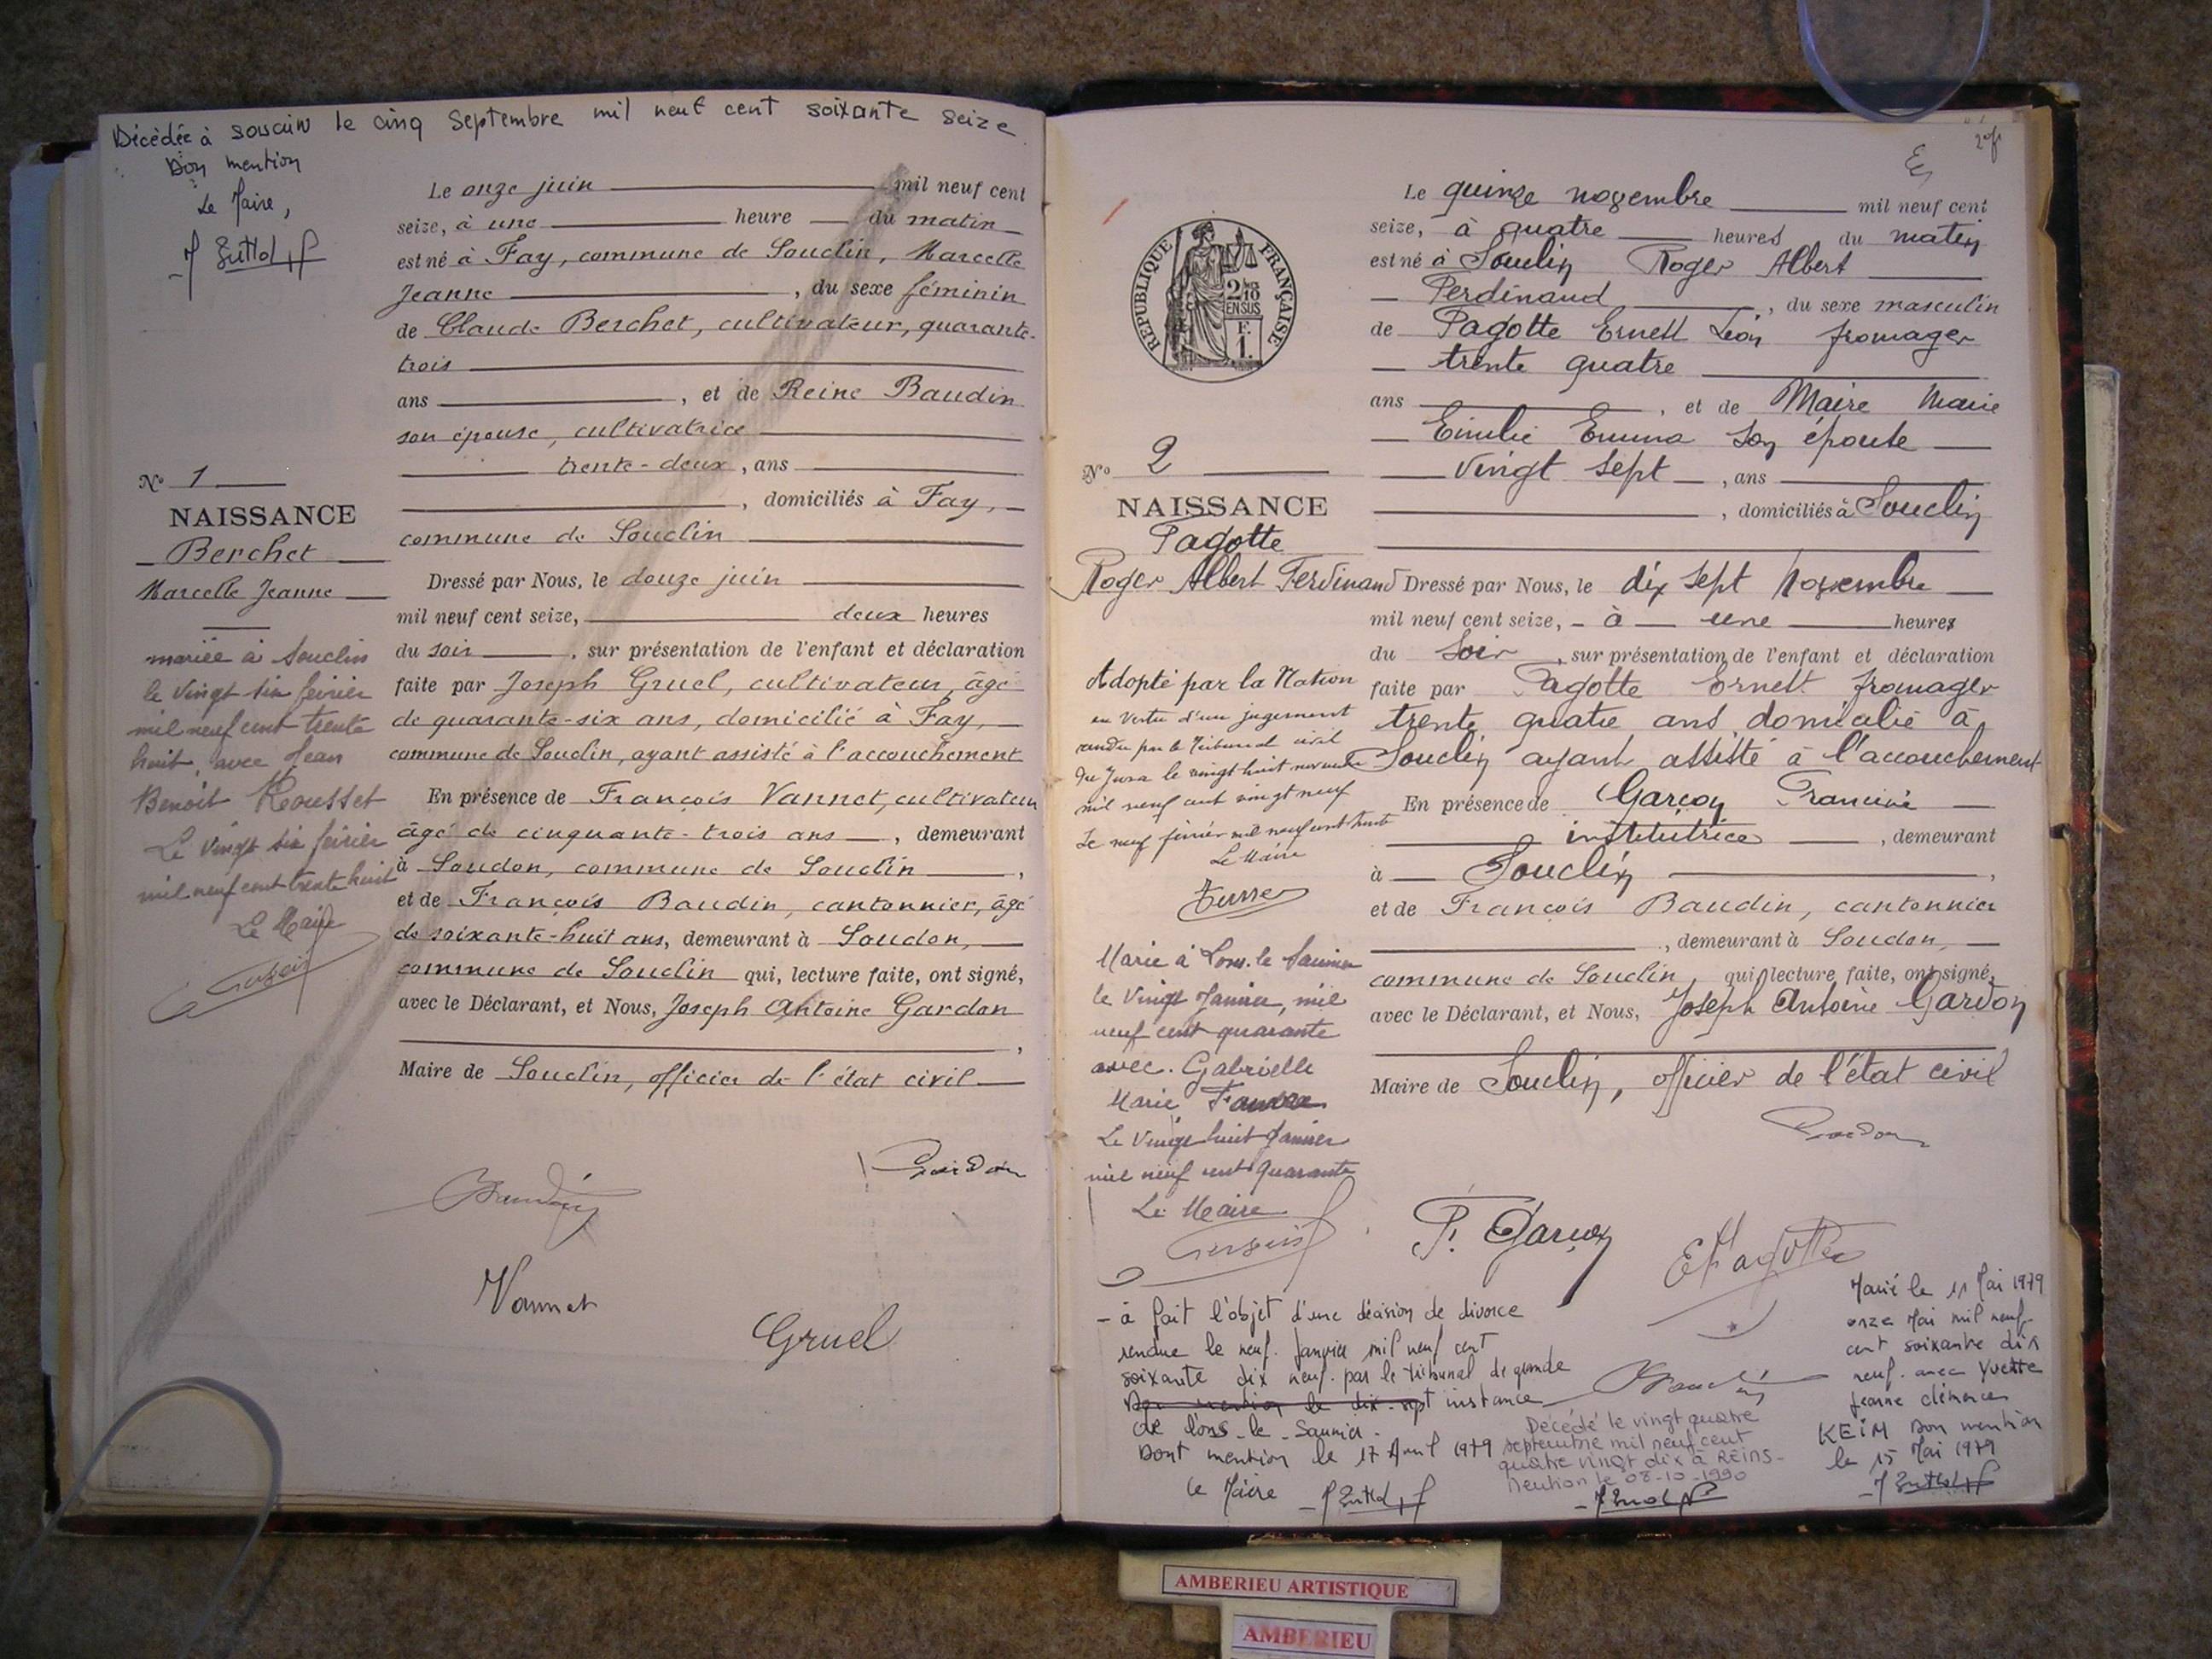 Décédée à souclin le cinq septembre mil neuf cent soixante seize
Don mention
Le Maire,
Le onze juin mil neuf cent
seize, à une heure du matin
est né à Fay, commune de Souclin, Marcelle
Jeanne , du sexe féminin
de Claude Berchet, cultivateur, quarante-
trois
ans , et de Reine Baudin
son épouse, cultivatrice
trente-deux , ans
, domiciliés à Fay,
commune de Souclin
No 1
NAISSANCE
Berchet
Marcelle Jeanne
Dressé par Nous, le douze juin
mil neuf cent seize, deux heures
du soir , sur présentation de l'enfant et déclaration
faite par Joseph Gruel, cultivateur, âgé
de quarante-six ans, domicilié à Fay,
commune de Souclin, ayant assisté à l'accouchement
En présence de François Vannet, cultivateur
âgé de cinquante-trois ans , demeurant
à Soudon, commune de Souclin ,
et de François Baudin, cantonnier, âgé
de soixante-huit ans, demeurant à Soudon,
commune de Souclin qui, lecture faite, ont signé,
avec le Déclarant, et Nous, Joseph Antoine Gardon
,
Maire de Souclin, officier de l'état civil
mariée à Souclin
le vingt six février
mil neuf cent trente
huit, avec Jean
Benoit Rousset
Le vingt six février
mil neuf cent trente huit
Le Maire
Gardon
Baudin
Vannet
Gruel
Le quinze novembre mil neuf cent
seize, à quatre heures du matin
est né à Souclin Roger Albert
Ferdinand , du sexe masculin
de Pagotte Ernest Léon fromager
trente quatre
ans , et de Maire Marie
Emilie Emma son épouse
vingt sept , ans
, domiciliés à Souclin
REPUBLIQUE FRANÇAISE
2/10 EN SUS
F. 1.
No 2
NAISSANCE
Pagotte
Roger Albert Ferdinand
Dressé par Nous, le dix sept Novembre
mil neuf cent seize, - à une heures
du Soir , sur présentation de l'enfant et déclaration
faite par Pagotte Ernest fromager
trente quatre ans domicilié à
Souclin ayant assisté à l'accouchement
En présence de Garçon Francine
institutrice , demeurant
à Souclin ,
et de François Baudin, cantonnier
, demeurant à Soudon,
commune de Souclin, qui, lecture faite, ont signé,
avec le Déclarant, et Nous, Joseph Antoine Gardon
Maire de Souclin, officier de l'état civil
Adopté par la Nation
en vertu d'un jugement
rendu par le Tribunal civil
du Jura le vingt huit novembre
mil neuf cent vingt neuf
Le neuf février mil neuf cent trente
Le Maire
Marié à Lons-le-Saunier
le vingt Janvier, mil
neuf cent quarante
avec Gabrielle
Marie
Le vingt huit Janvier
mil neuf cent quarante
Le Maire
Gardon
F. Garçon
E Pagotte
Baudin
- à fait l'objet d'une décision de divorce
rendue le neuf Janvier mil neuf cent
soixante dix neuf. par le tribunal de grande
Don mention le dix-sept instance
de lons-le-Saunier.
Dont mention le 17 Avril 1979
Le Maire
Décédé le vingt quatre
septembre mil neuf cent
quatre vingt dix à REIMS-
Mention le 08-10-1990
Marié le 11 Mai 1979
onze Mai mil neuf
cent soixante dix
neuf. avec Yvette
Jeanne clémence
KEIM Don mention
le 15 Mai 1979
AMBERIEU ARTISTIQUE
AMBERIEU